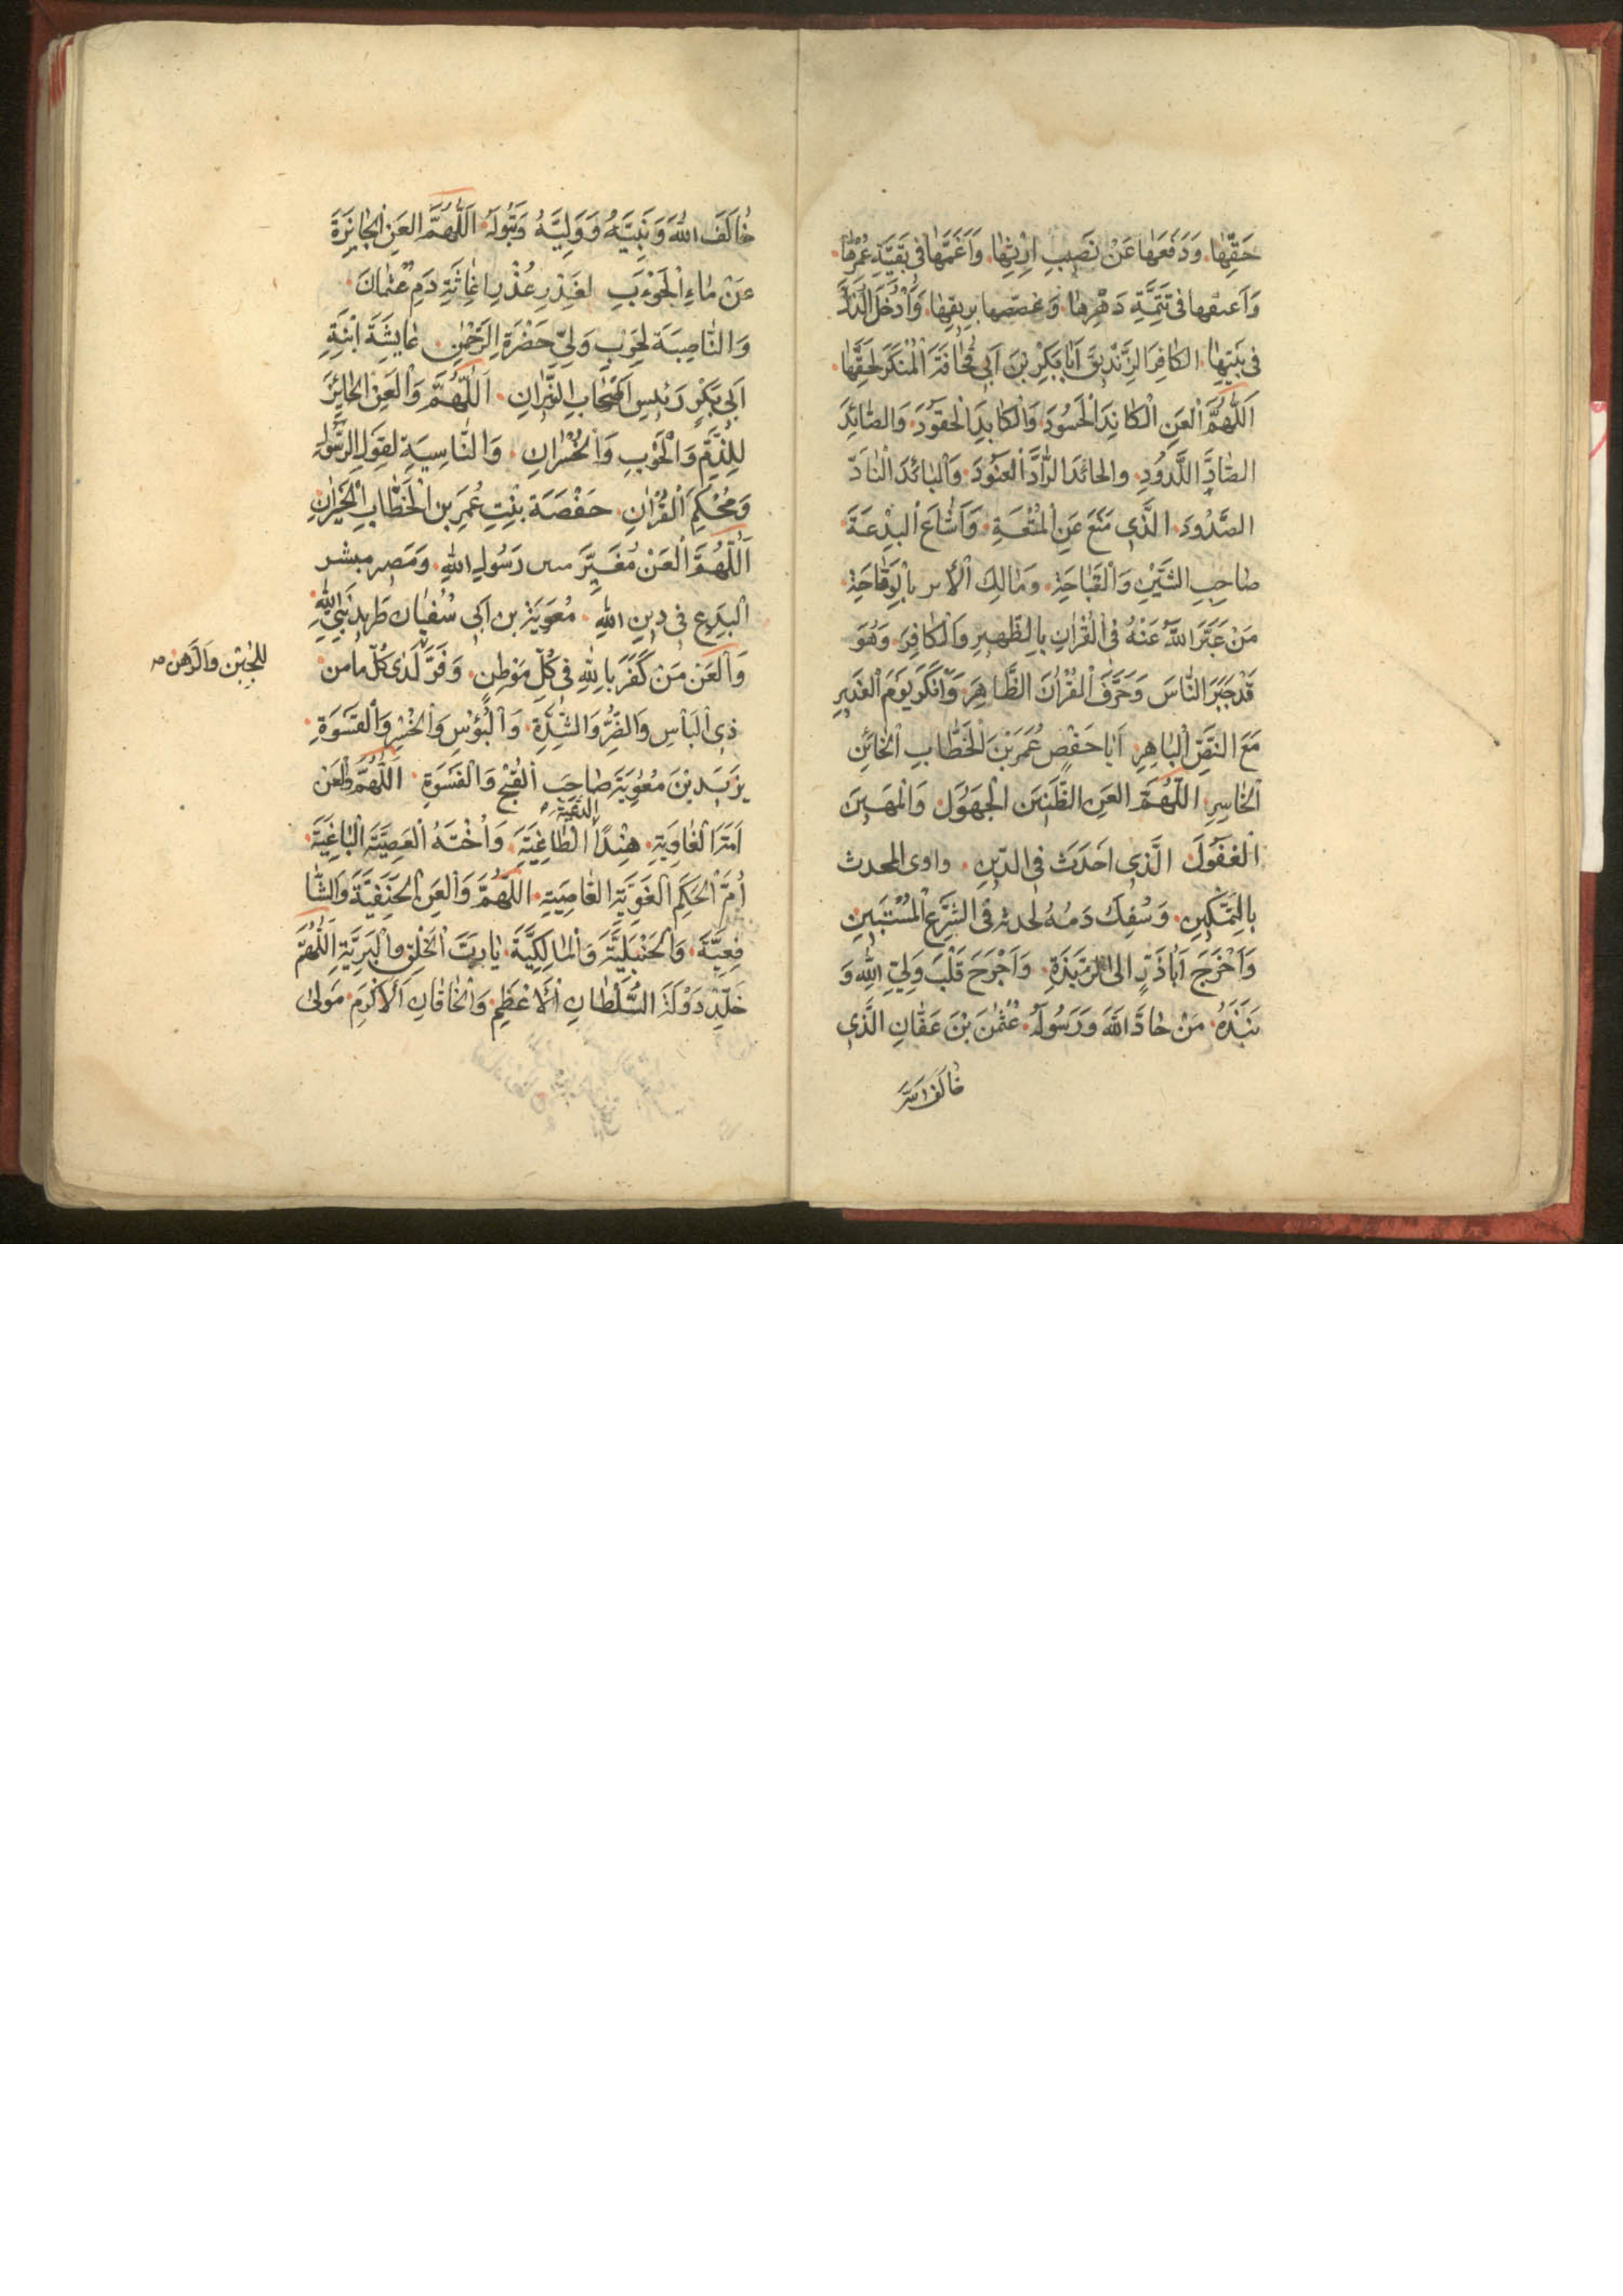 حَقِّهَا. وَدَفَعَهَا عَنْ نَصِيبِ اِرْثِهَا. وَاَغَمَّهَا فِي بَقِيَّةِ عُمْرِهَا.
وَاَعْنَفَهَا فِي تَتِمَّةِ دَهْرِهَا. وَغَصَّصَهَا بِرِيقِهَا. وَاَدْخَلَ
فِي بَيْتِهَا. الكَافِرَ الزِّنْدِيقَ اَبَابَكْرِ بْنَ اَبِي قُحَافَةَ الْمُنْكِرَ لِحَقِّهَا.
اَللّٰهُمَّ الْعَنِ الْكَائِدَ الْحَسُودَ وَالْكَابِدَ الْحَقُودَ. وَالصَّائِدَ
الصَّادَّ اللَّدُودَ. والحائدَ الرَّادَّ الْعَنُودَ. وَالْبَائِدَ النَّادَّ
الصَّدُودَ. الَّذِي مَنَعَ عَنِ الْمُتْعَةِ. وَاَشَاعَ الْبِدْعَةَ.
صَاحِبِ الشَّيْنِ وَالْقَبَاحَةِ. وَمَالِكِ الْأمر بِالْوَقَاحَةِ.
مَنْ عَبَّرَ اللّٰهُ عَنْهُ فِي الْقُرْاٰنِ بِالظَّهِيرِ وَالْكَافِرِ. وَهُوَ
قَدْ جَبَرَ النَّاسَ وَحَرَّفَ الْقُرْاٰنَ الظَّاهِرَ. وَاَنْكَرَ يَوْمَ الْغَدِيرِ
مَعَ النَّصِّ الْبَاهِرِ. اَبَا حَفْصٍ عُمَرَ بْنَ الْخَطَّابِ الْخَائِنِ
الْخَاسِرِ. اَللّٰهُمَّ الْعَنِ الظَّنِينَ الْجَهُولَ. وَالْمَهِينَ
الْغَفُولَ. الَّذِي اَحْدَثَ فِي الدِّينِ. واوى المحدث
بِالتَّمْكِينِ. وَسُفِكَ دَمُهُ لحدثه فِي الشَّرْعِ الْمُسْتَبِينِ.
وَاَخْرَجَ اَبَاذَرٍّ اِلَى الرَّبَذَةِ. وَاَجْرَحَ قَلْبَ وَلِيِّ اللّٰهِ وَ
نَبَذَهُ. مَنْ حَادَّ اللّٰهَ وَرَسُولَهُ. عُثْمٰنَ بْنَ عَفَّانَ الَّذِي
خَالَفَ الله
خَالَفَ اللّٰهَ وَنَبِيَّهُ وَوَلِيَّهُ وَبَتُولَهُ. اَللّٰهُمَّ الْعَنِ الْجَائِزَةَ
عَنْ مَاءِ الْحَوْءَبِ لِغَدْرِ عُذْرِ اِغَاثَةِ دَمِ عُثْمَانَ.
وَالنَّاصِبَةَ لِحَرْبِ وَلِيِّ حَضْرَةِ الرَّحْمٰنِ. عَايِشَةَ ابْنَةِ
اَبِي بَكْرٍ رَئِيسِ اَصْحَابِ النِّيرَانِ. اَللّٰهُمَّ وَالْعَنِ الْحَائِزَ
لِلذَّمِّ وَالْحَوْبِ وَالْخُسْرَانِ. وَالنَّاسِيَةِ لِقَوْلِ الرَّسُولِ
وَمُحْكَمِ الْقُرْاٰنِ. حَفْصَةَ بِنْتِ عُمَرَ بن الْخَطَّابِ الْحَيْرَانِ.
اَللّٰهُمَّ الْعَنْ مُغَيِّرَ رَسُولِ اللّٰهِ.
الْبِدَعِ فِي دِينِ اللّٰهِ. مُعَوِيَةَ بن اَبِي سُفْيَانَ طَرِيدِ نَبِيِّ اللّٰهِ.
وَالْعَنْ مَنْ كَفَرَ بِاللّٰهِ فِي كُلِّ مَوْطِنٍ. وَفَرَّ لَدَى كُلِّ مَأمن
للجُبْن وَالوَهْن صح
ذِي الْبَأْسِ وَالضُّرِّ وَالشِّدَّةِ. وَالْبُؤْسِ وَالْخُسْرِ وَالْقَسْوَةِ.
يَزِيدَ بْنَ مُعٰوِيَةَ صَاحِبَ الْقُبْحِ وَالْقَسْوَةِ. اَللّٰهُمَّ وَالْعَنْ
الدَّعِيَّةَ
اَمَتَهُ الْغَاوِيَةِ. هِنْدًا الطَّاغِيَةِ. وَاُخْتَهُ الْعَصِيَّةَ الْبَاغِيَةَ.
اُمَّ الْحَكَمِ الْغَوِيَّةَ الْعَاصِيَةِ. اَللّٰهُمَّ وَالْعَنِ الْحَنَفِيَّةَ وَالشَّا
فِعِيَّةَ. وَالْحَنْبَلِيَّةَ وَالْمَالِكِيَّةَ. يَا رَبَّ الْخَلْقِ وَالْبَرِيَّةِ. اَللّٰهُمَّ
خَلِّدْ دَوْلَةَ السُّلْطَانِ الْأَعْظَمِ. وَالْخَاقَانِ الْأَكْرَمِ. مَوْلَى